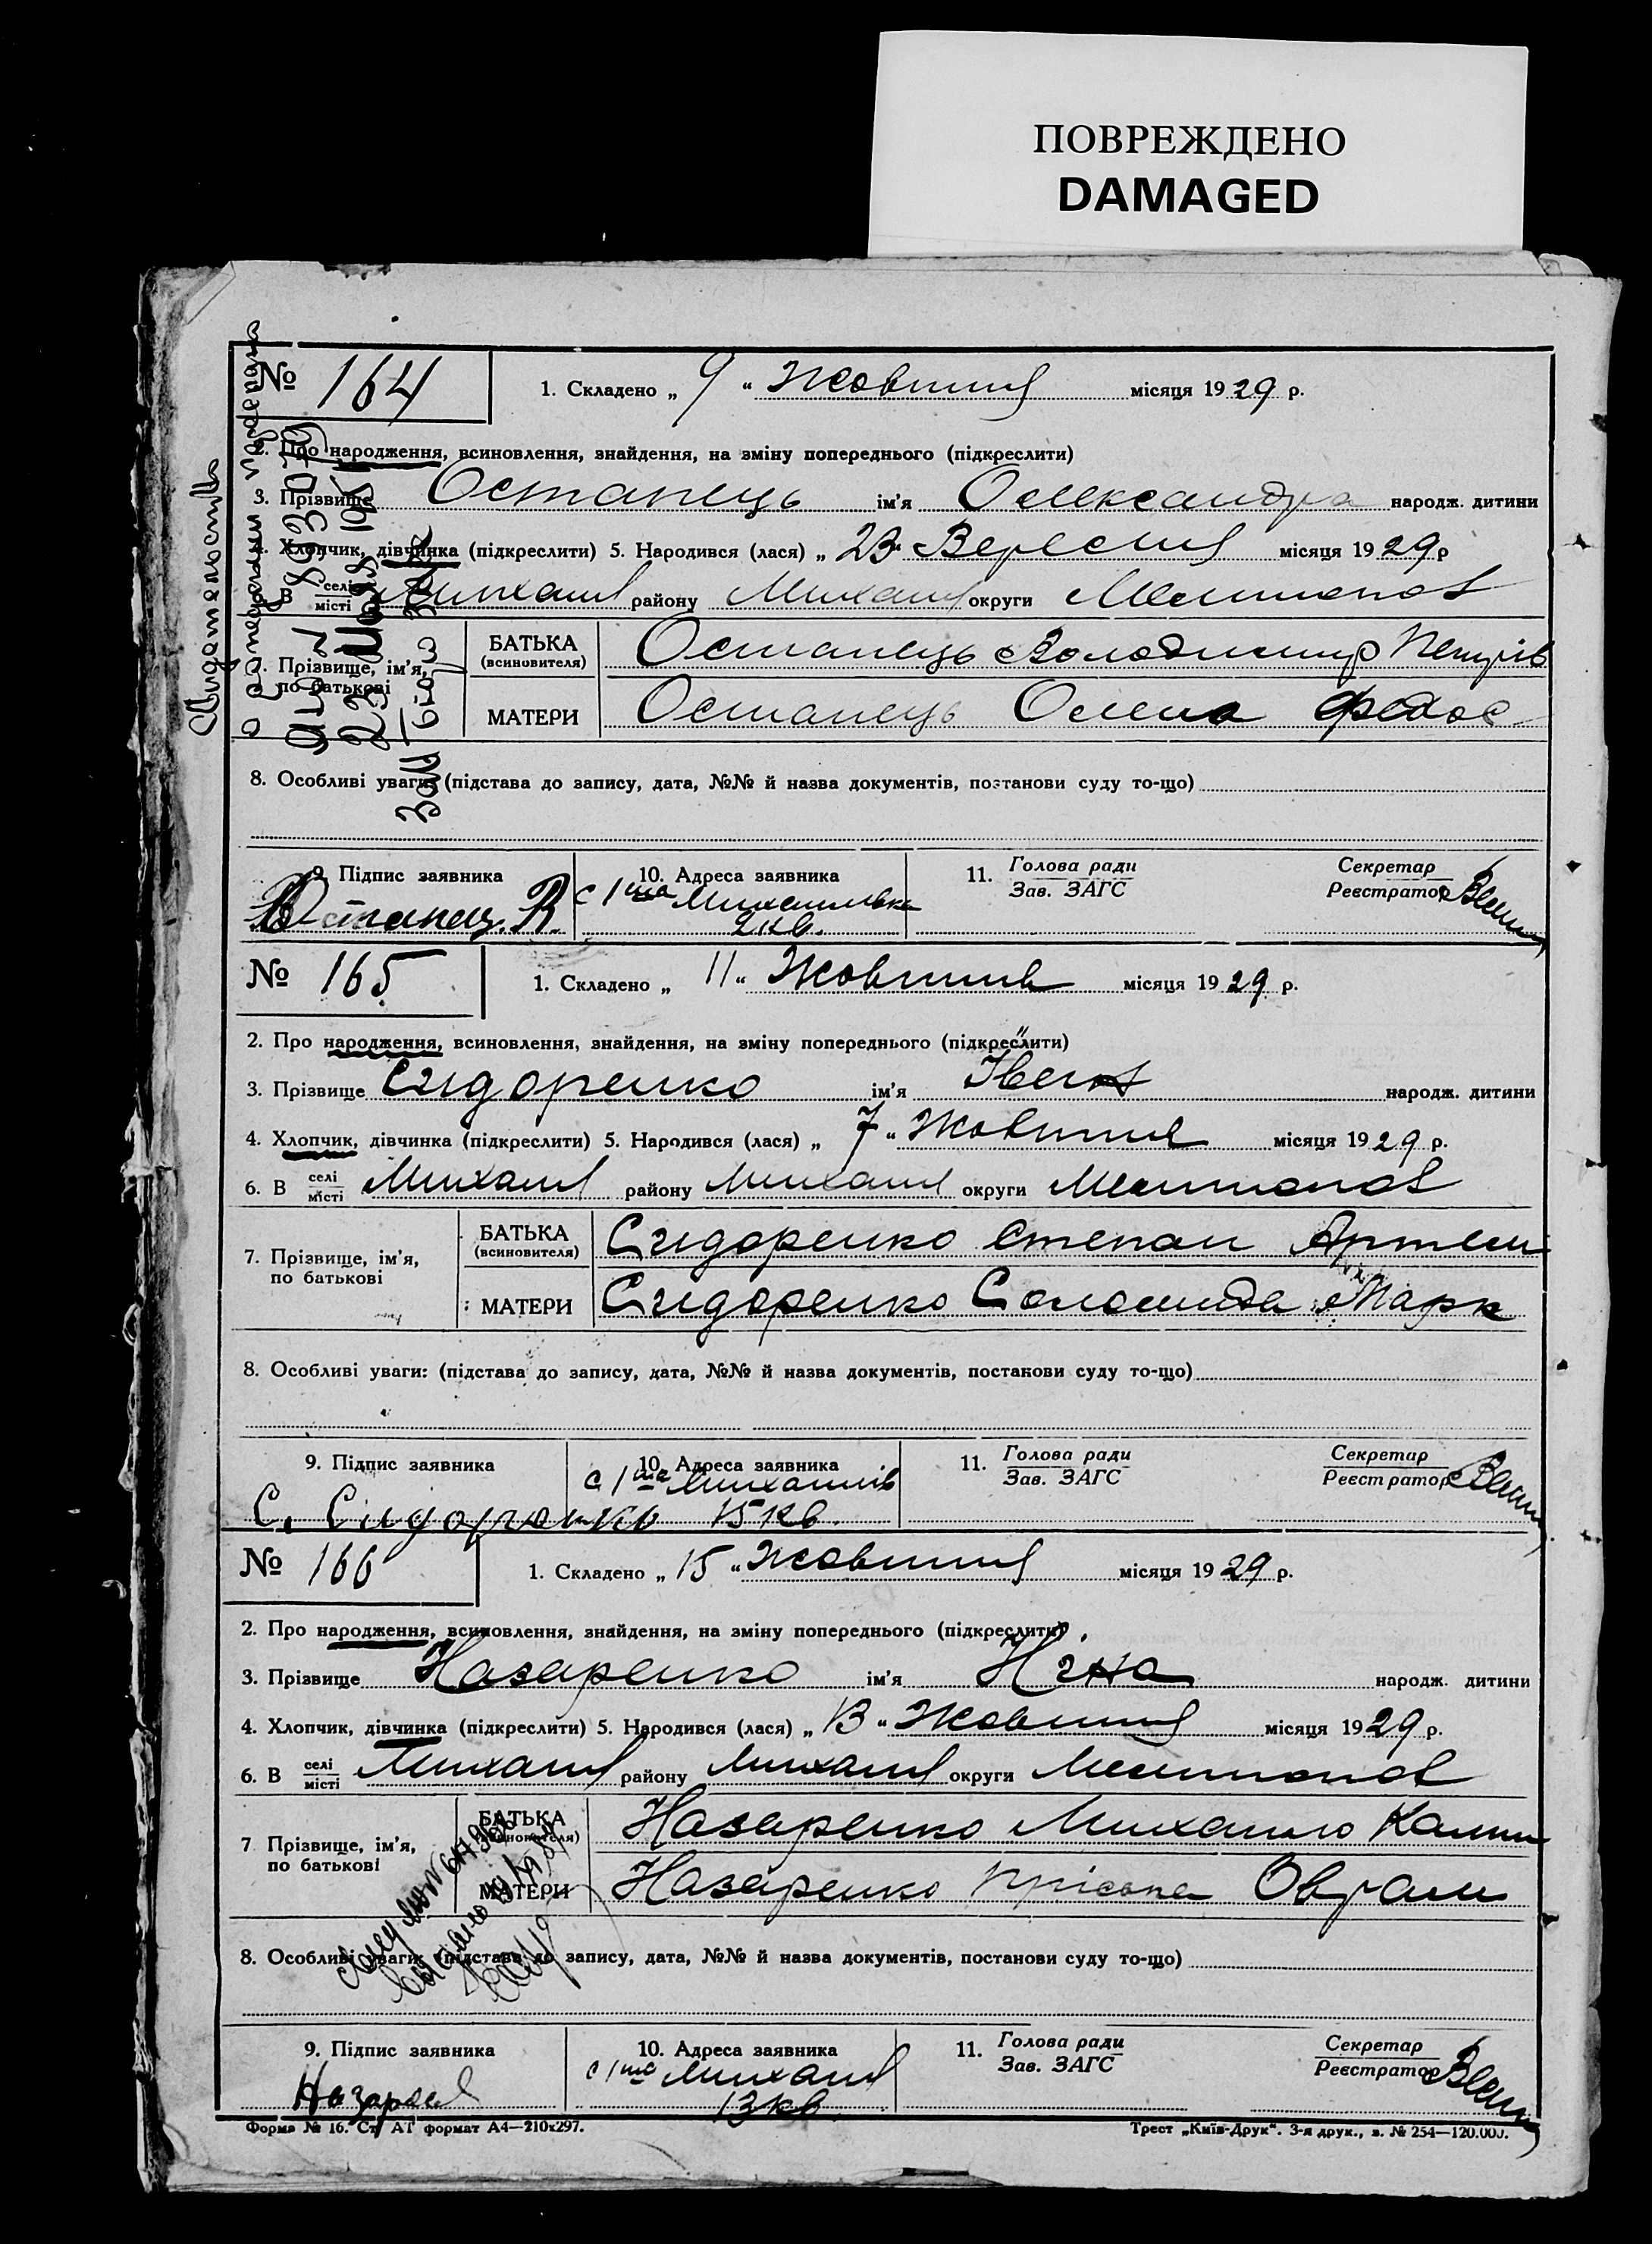 ПОВРЕЖДЕНО
DAMAGED
№ 164
1. Складено „ 9 “ Жовтня місяця 1929 р.
2. Про народження, всиновлення, знайдення, на зміну попереднього (підкреслити)
3. Прізвище Останець ім'я Олександра народж. дитини
4. Хлопчик, дівчинка (підкреслити) 5. Народився (лася) „ 23 “ Вересня місяця 1929 р
6. В селі місті Михайл району Михайл округи Мелитопол
7. Прізвище, ім'я, по батькові
БАТЬКА (всиновителя) Останець Володимир Петрів
МАТЕРИ Останець Олена Федос
8. Особливі уваги: (підстава до запису, дата, №№ й назва документів, постанови суду то-що)
9. Підпис заявника Останец. В.
10. Адреса заявника с 1ша Михайлівка 2 кв.
11. Голова ради Зав. ЗАГС
Секретар Реєстратор
№ 165
1. Складено „ 11 “ Жовтня місяця 1929 р.
2. Про народження, всиновлення, знайдення, на зміну попереднього (підкреслити)
3. Прізвище Сидоренко ім'я Івега народж. дитини
4. Хлопчик, дівчинка (підкреслити) 5. Народився (лася) „ 7 “ Жовтня місяця 1929 р.
6. В селі місті Михайл району Михайл округи Мелитопол
7. Прізвище, ім'я, по батькові
БАТЬКА (всиновителя) Сидоренко Степан Артем
МАТЕРИ Сидоренко Соломида Марк
8. Особливі уваги: (підстава до запису, дата, №№ й назва документів, постанови суду то-що)
9. Підпис заявника С. Сидоренко
10. Адреса заявника с 1ша Михайлів 15 кв.
11. Голова ради Зав. ЗАГС
Секретар Реєстратор
№ 166
1. Складено „ 15 “ Жовтня місяця 1929 р.
2. Про народження, всиновлення, знайдення, на зміну попереднього (підкреслити)
3. Прізвище Назаренко ім'я Ніна народж. дитини
4. Хлопчик, дівчинка (підкреслити) 5. Народився (лася) „ 13 “ Жовтня місяця 1929 р.
6. В селі місті Михайл району Михайл округи Мелитопол
7 Прізвище, ім'я, по батькові
БАТЬКА (всиновителя) Назаренко Михайло Калин
МАТЕРИ Назаренко Прісьна Оврам
8. Особливі уваги: (підстава до запису, дата, №№ й назва документів, постанови суду то-що)
9. Підпис заявника
10. Адреса заявника с 1ша Михайл 13 кв.
11. Голова ради Зав. ЗАГС
Секретар Реєстратор
Форма № 16. Ст. АТ формат А4—210х297.
Трест „Київ-Друк“. 3-я друк., з. № 254—120.000.